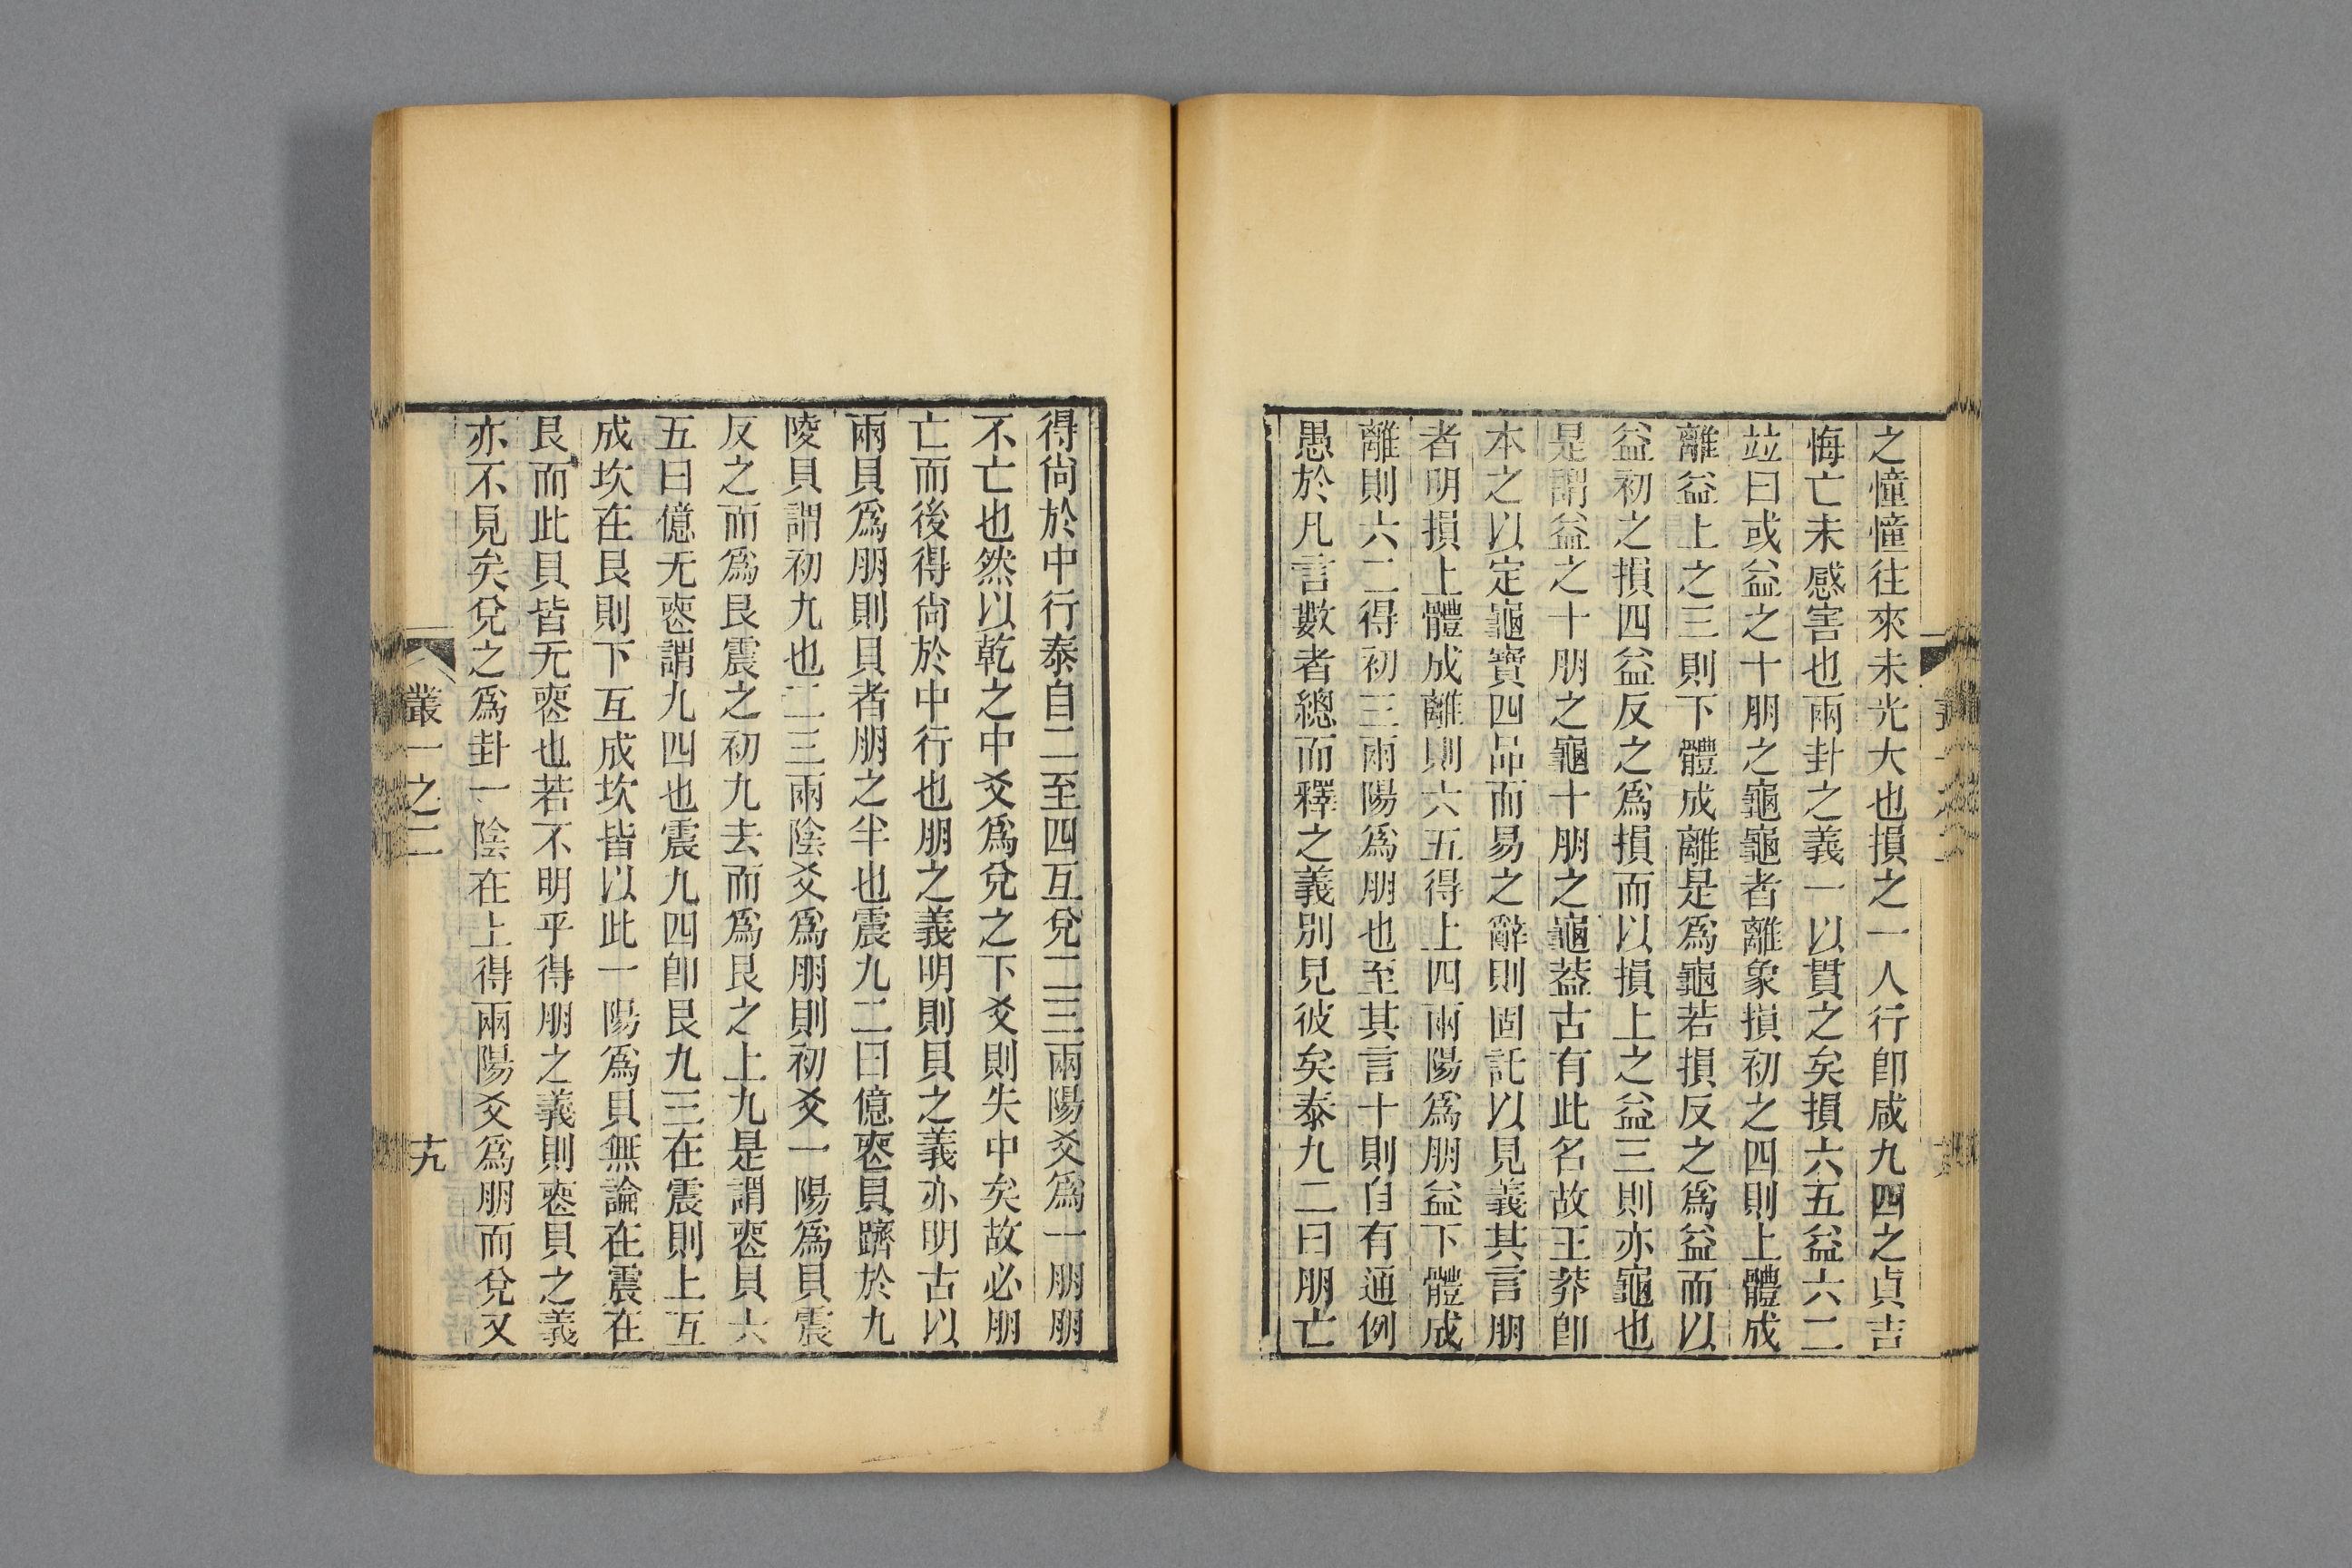 之憧憧往來未光大也損之一人行卽咸九四之貞吉
悔亡未感害也兩卦之義一以貫之矣損六五益六二
竝曰或益之十朋之龜龜者離象損初之四則上體成
離益上之三則下體成離是爲龜若損反之爲益而以
益初之損四益反之爲損而以損上之益三則亦龜也
是謂益之十朋之龜十朋之龜葢古有此名故王莽卽
本之以定龜寶四品而易之辭則固託以見義其言朋
者明損上體成離則六五得上四兩陽爲朋益下體成
離則六二得初三兩陽爲朋也至其言十則自有通例
愚於凡言數者總而釋之義別見彼矣泰九二曰朋亡
得尙於中行泰自二至四互兌二三兩陽爻爲一朋朋
不亡也然以乾之中爻爲兌之下爻則失中矣故必朋
亡而後得尙於中行也朋之義明則貝之義亦明古以
兩貝爲朋則貝者朋之半也震九二曰億喪貝躋於九
陵貝謂初九也二三兩陰爻爲朋則初爻一陽爲貝震
反之而爲艮震之初九去而爲艮之上九是謂喪貝六
五曰億无喪謂九四也震九四卽艮九三在震則上互
成坎在艮則下互成坎皆以此一陽爲貝無論在震在
艮而此貝皆无喪也若不明乎得朋之義則喪貝之義
亦不見矣兌之爲卦一陰在上得兩陽爻爲朋而兌又
叢一之二
十九